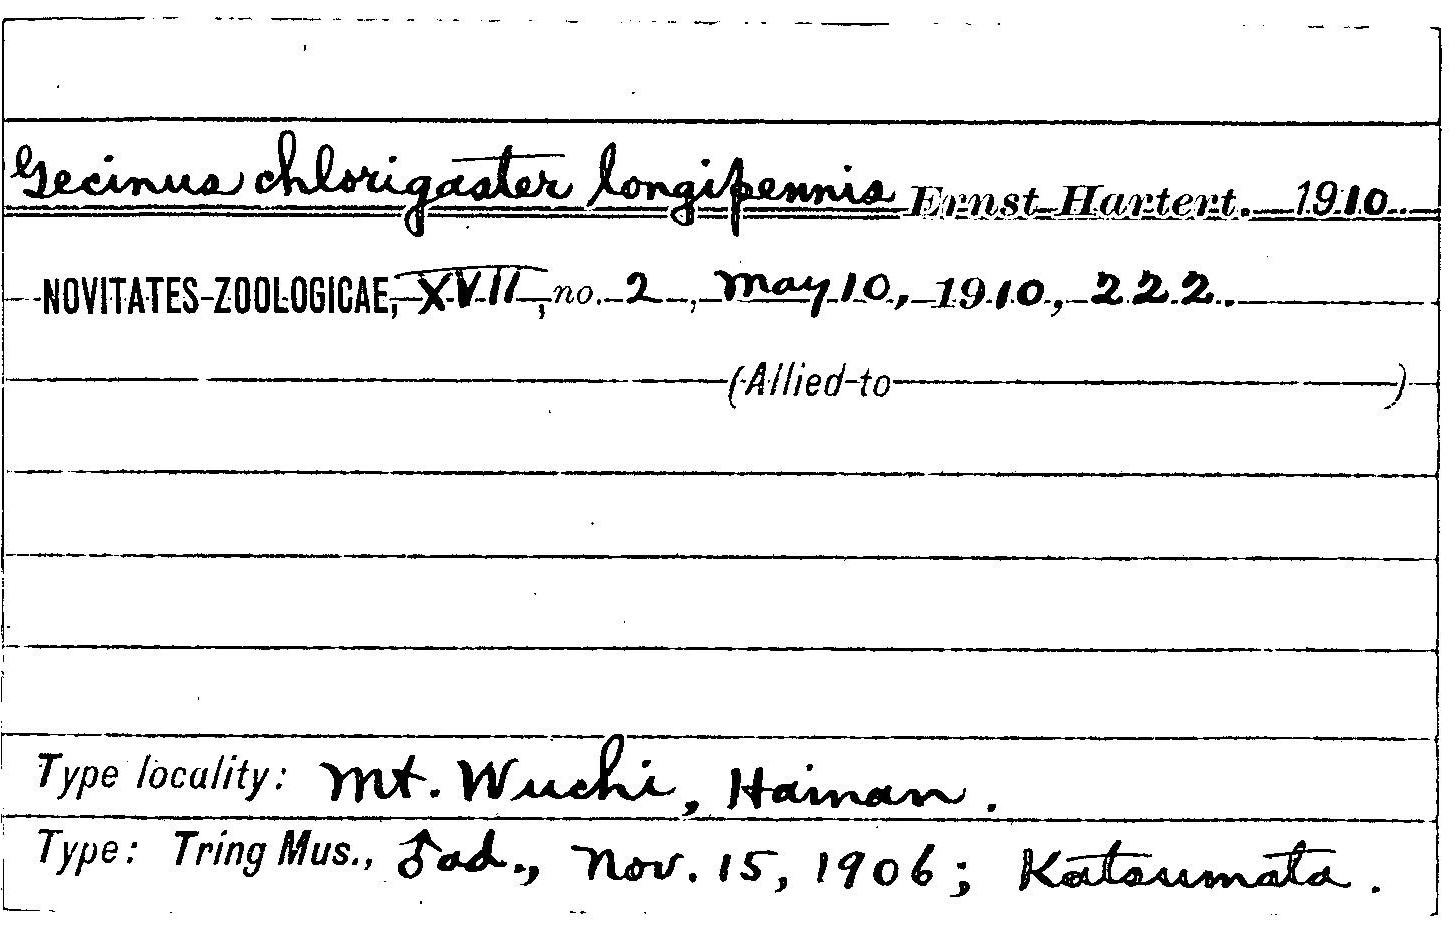 Gecinus chlorigaster longipennis Ernst Hartert. 1910
NOVITATES ZOOLOGICAE, XVII, no. 2, May 10, 1910, 222.
(Allied to )
Type locality: Mt. Wuchi, Hainan.
Type: Tring Mus., ♂ ad., Nov. 15, 1906; Katsumata.